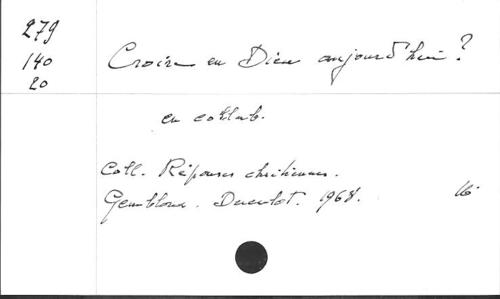 279
140
20
Croire en Dieu aujourd'hui?
en collab.
Coll. Réponses chrétiennes.
Gembloux. Duculot. 1968. 16.